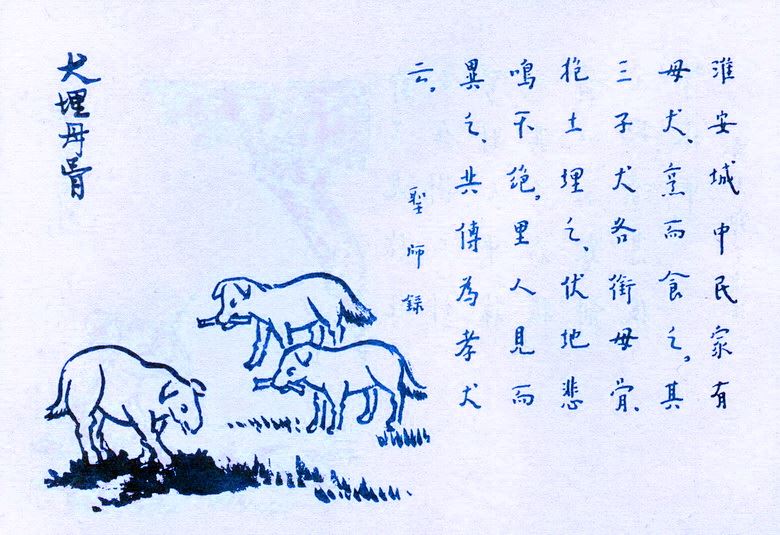 淮安城中民家有
母犬、烹而食之。其
三子犬各銜母骨、
抱土埋之、伏地悲
鳴不絕。里人見而
異之、共傳為孝犬
云。
聖師録
犬埋母骨